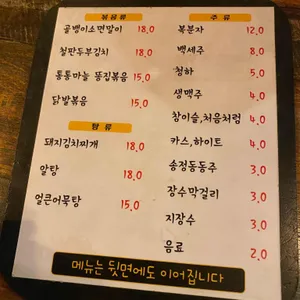 볶음류
골뱅이소면말이 18.0
철판두부김치 18.0
통통마늘 똥집볶음 15.0
닭발볶음 15.0
탕류
돼지김치찌개 18.0
알탕 18.0
얼큰어묵탕 15.0
주류
복분자 12.0
백세주 8.0
청하 5.0
생맥주 4.0
참이슬,처음처럼 4.0
카스,하이트 4.0
송정동동주 3.0
장수막걸리 3.0
지장수 3.0
음료 2.0
메뉴는 뒷면에도 이어집니다